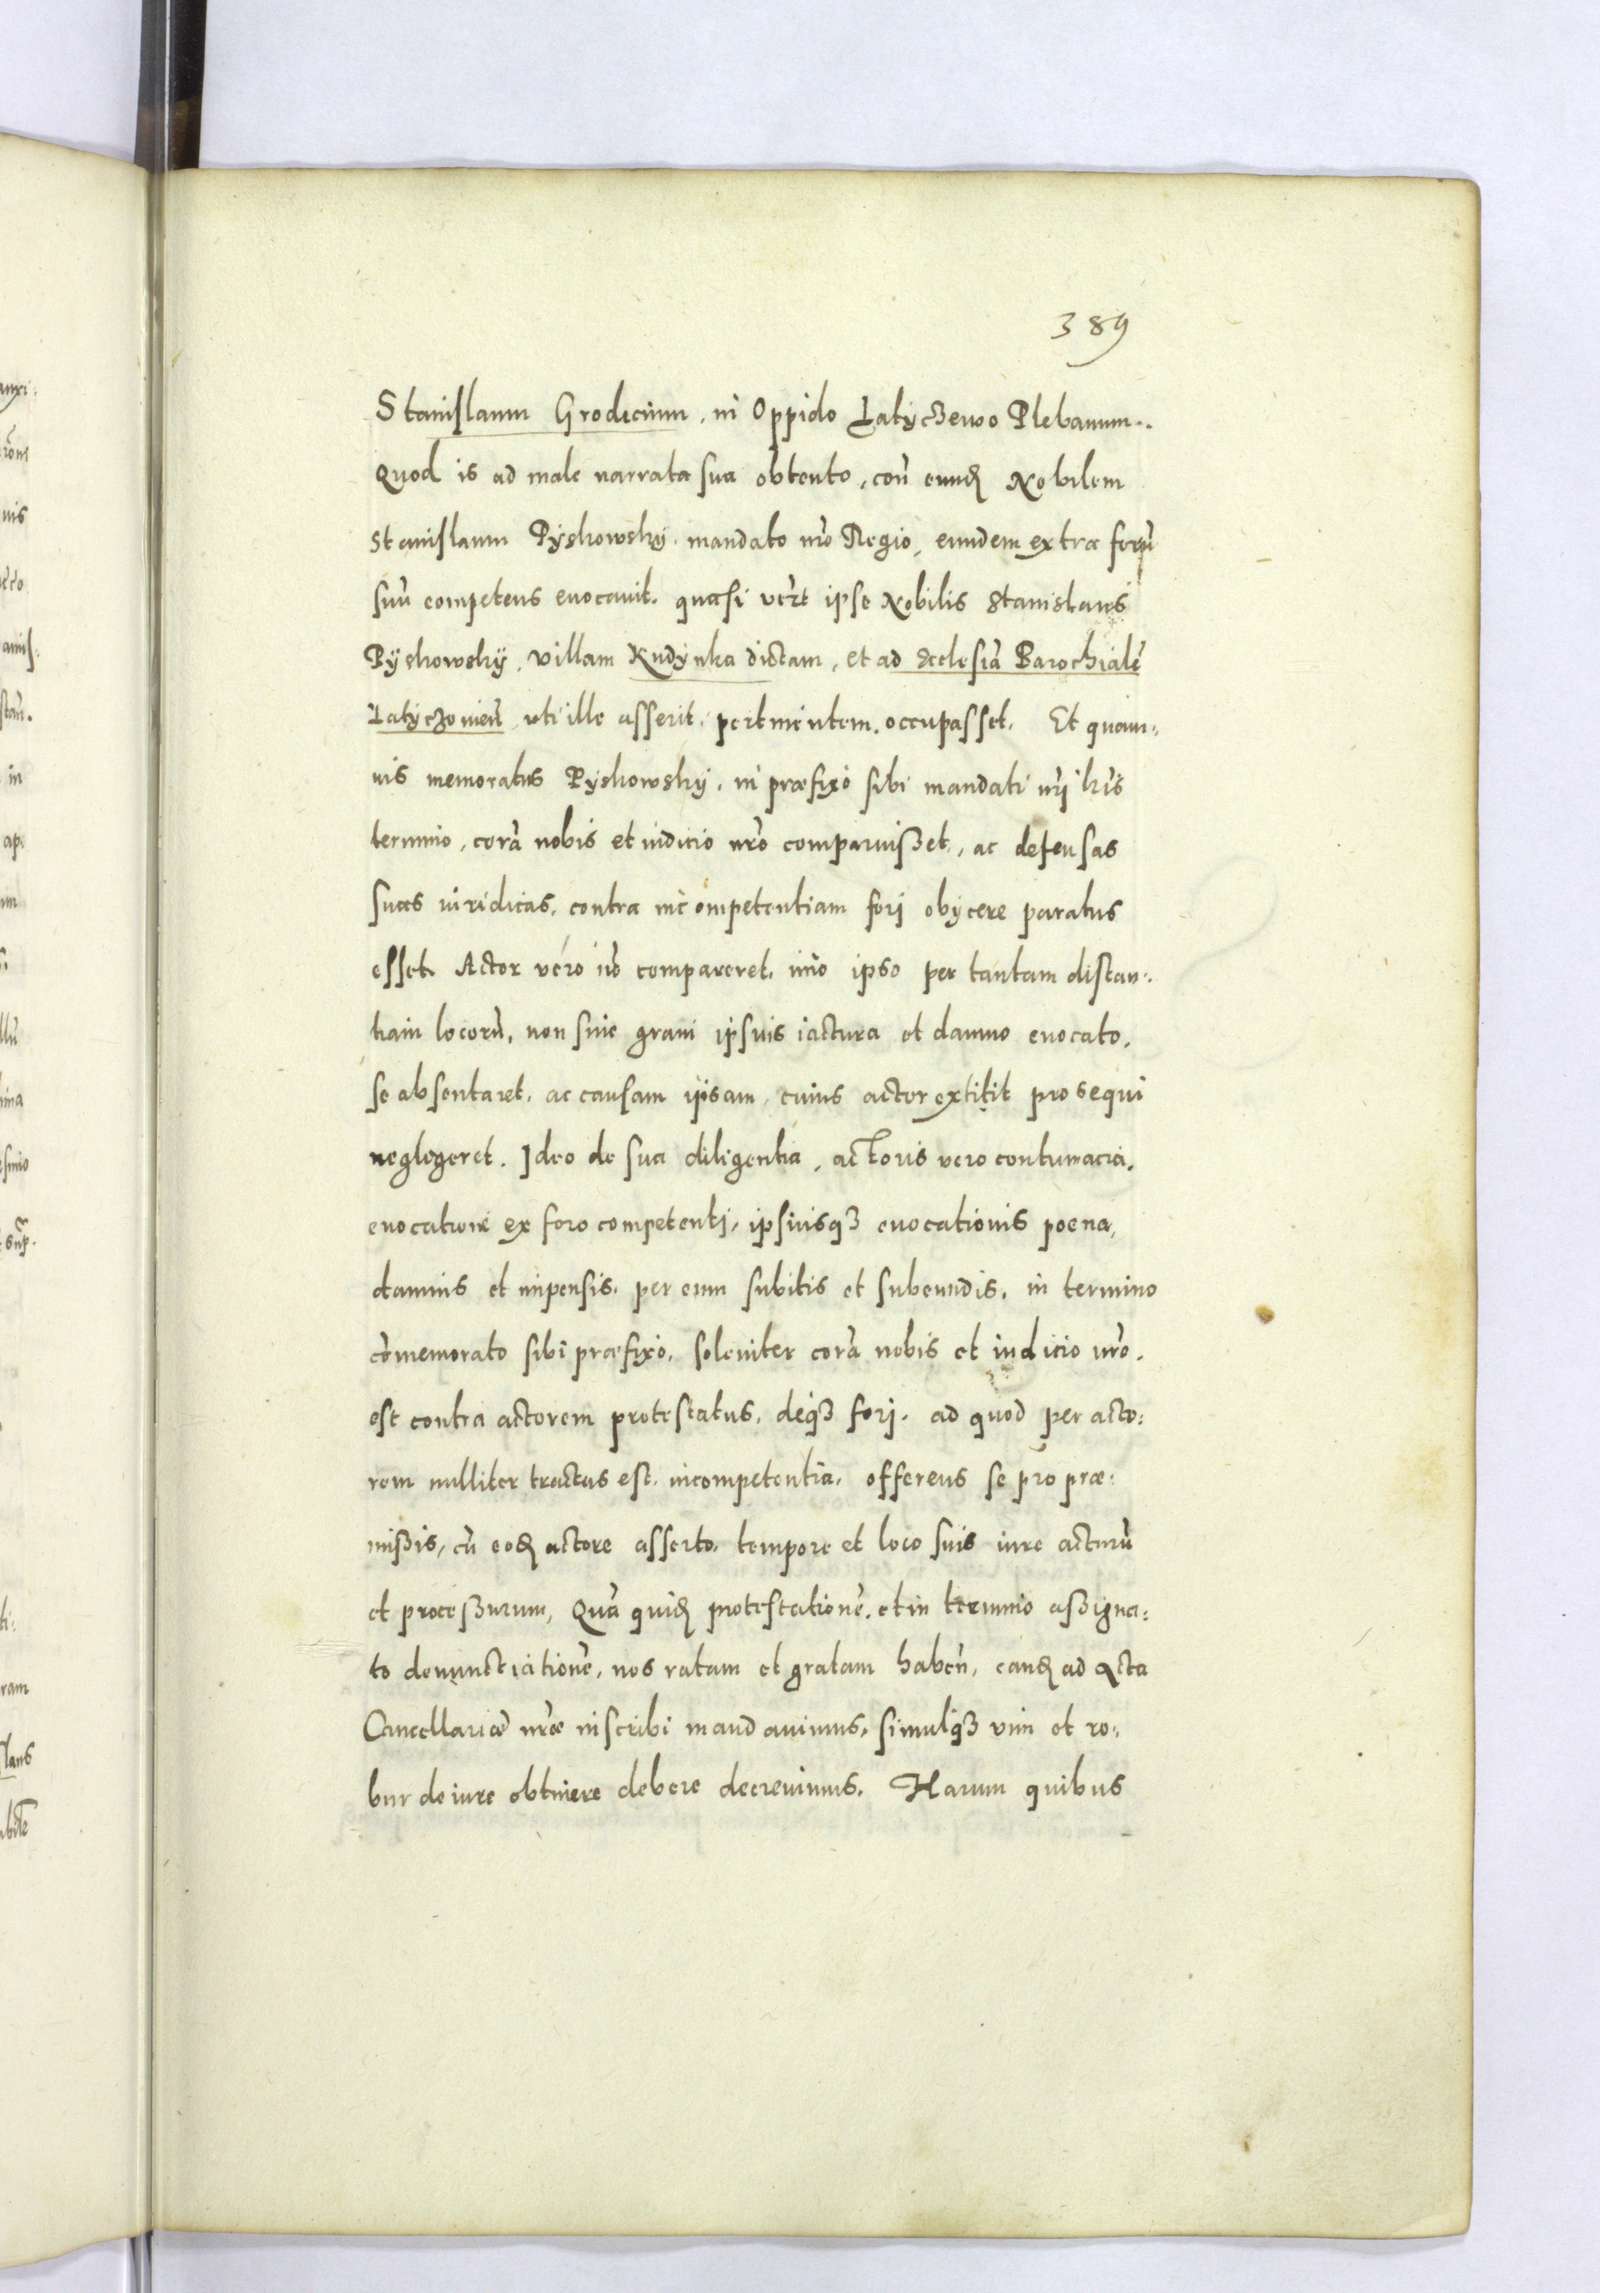 389
Stanislaum Grodicium, in Oppido Latyczewo Plebanum.
Quod is ad male narrata sua obtento, con̄ eund̨ Nobilem
Stanislaum Pyskowsky. mandato nr̄o Regio, eundem extra forū
suū competens euocauit. quasi vero ipse Nobilis Stanislaus
Pyskowskÿ. villam Kudynka dictam, et ad Ecclesiā Parochialē
Latyczouien̄ vti ille asserit. pertinentem. occupasset. Et quam-
uis memoratus Pyskowsky. in præfixo sibi mandati nr̄i
termino, corā nobis et iudicio nr̄o comparuisset, ac defensas
suas iuridicas, contra incompetentiam forj obÿcere paratus
esset. Actor vero nō compareret. imo ipso per tantam distan-
tiam locorū, non sine graui ipsius iactura et damno euocato,
se absentaret. ac causam ipsam, cuius actor extitit prosequi
neglegeret. Ideo de sua diligentia, actoris vero contumacia,
euocatione ex foro competenti, ipsiusqȝ euocationis poena,
damnis et impensis. per eum subitis et subeundis, in termino
cōmemorato sibi præfixo. soleniter corā nobis et iudicio nr̄o.
est contra actorem protestatus, deqȝ forj. ad quod per acto:
rem nulliter tractus est. incompetentia. offerens se pro præ:
missis, cū eod̨ actore asserto. tempore et loco suis iure acturū
et processurum, Quā quid̨ protestationē. et in termino assigna:
to denunctiationē, nos ratam et gratam haben̄, eand̨ ad Acta
Cancellariæ nr̄æ inscribi mandauimus, simulqȝ vim et ro:
bur de iure obtinere debere decreuimus. Harum quibus